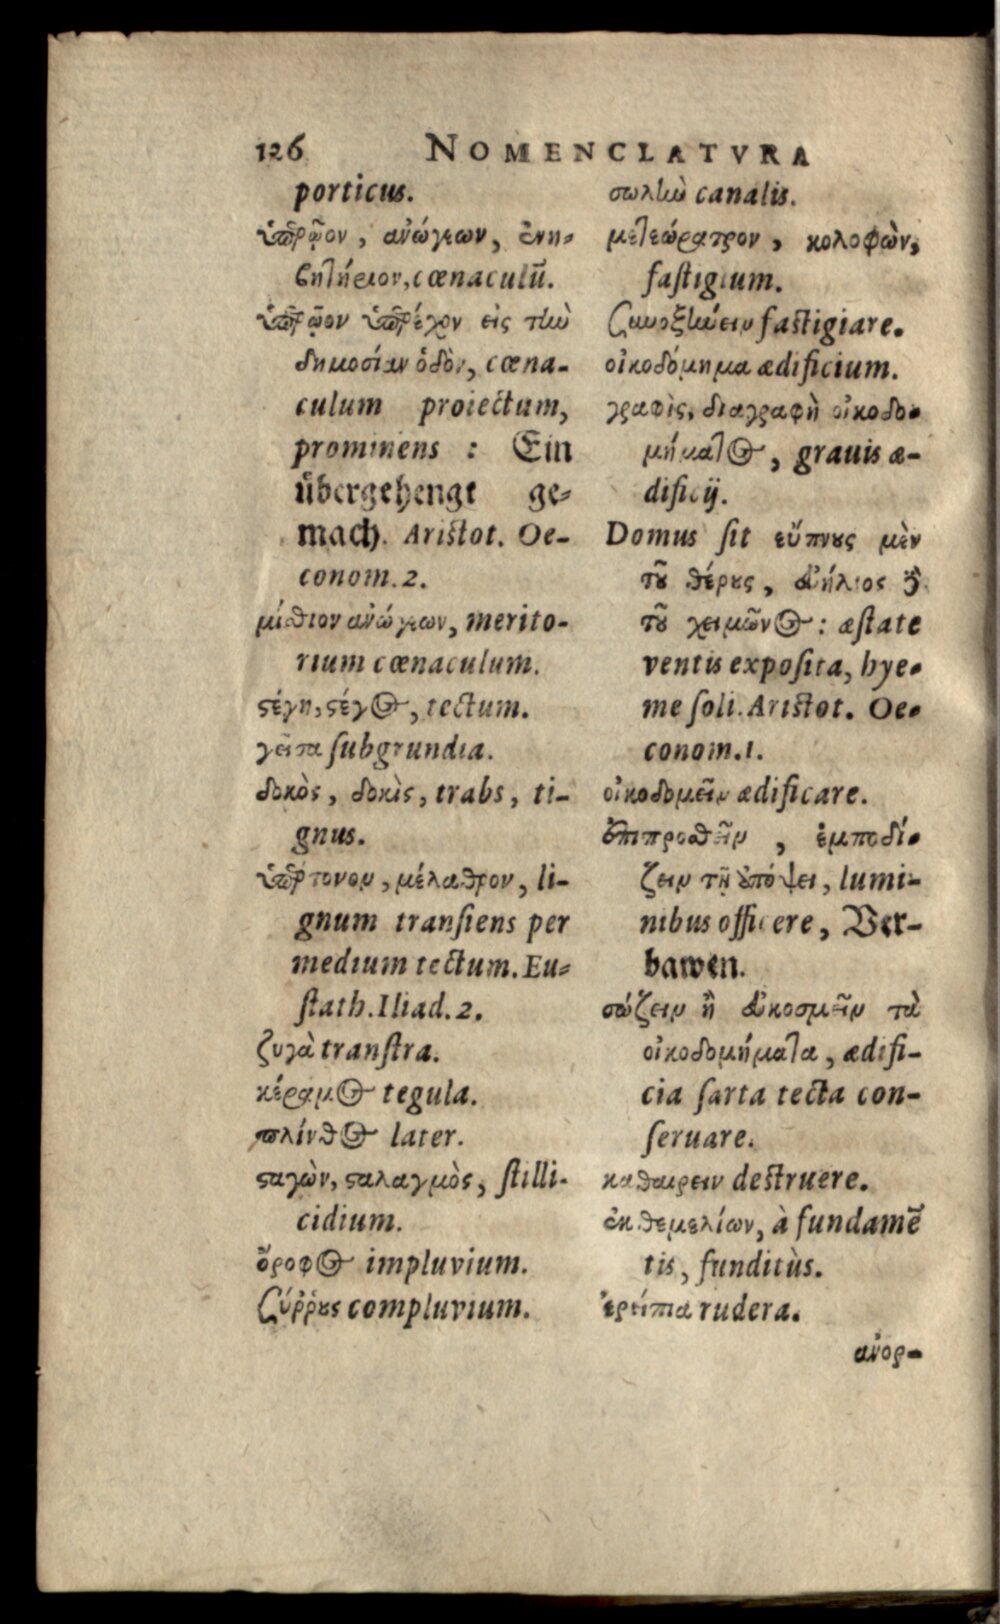 126 NOMENCLATVRA
porticus.
ὑπερῷον, ἀνώγεων, ἐνη-
βητήριον, cœnaculũ.
ὑπερῷον ὑπερέχον εἰς τὴν
δημοσίαν ὁδὸν, cœna-
culum proiectum,
prominens : Ein
übergehengt ge-
mach. Aristot. Oe-
conom. 2.
μίσθιον ἀνώγεων, merito-
rium cœnaculum.
στέγη, στέγος, tectum.
γεῖσα subgrundia.
δοκὸς, δοκὶς, trabs, ti-
gnus.
ὑπέρτονον, μέλαθρον, li-
gnum transiens per
medium tectum. Eu-
stath. Iliad. 2.
ζυγὰ transtra.
κέραμος tegula.
πλίνθος later.
σταγὼν, σταλαγμὸς, stilli-
cidium.
ὄροφος impluvium.
σύῤῥους compluvium.
σωλὼ canalis.
μετεώρατρον, κολοφὼν,
fastigium.
fastigiare.
οἰκοδόμημα ædificium.
γραφὶς, διαγραφὴ οἰκοδο-
μήματος, grauis æ-
dificij.
Domus sit εὔπνους μὲν
τοῦ θέρους, εὐήλιος δὲ
τοῦ χειμῶνος : æstate
ventis exposita, hye-
me soli. Aristot. Oe-
conom. 1.
οἰκοδομεῖν ædificare.
ἐπιπροσθεῖν, ἐμποδί-
ζειν τῇ ὑπόψει, lumi-
nibus officere, Ver-
bawen.
σώζειν ἢ εὐκοσμεῖν τὰ
οἰκοδομήματα, ædifi-
cia sarta tecta con-
seruare.
καθαιρειν destruere.
ἐκ θεμελίων, à fundamẽ
tis, funditùs.
ἐρείπια rudera.
ἀνορ-